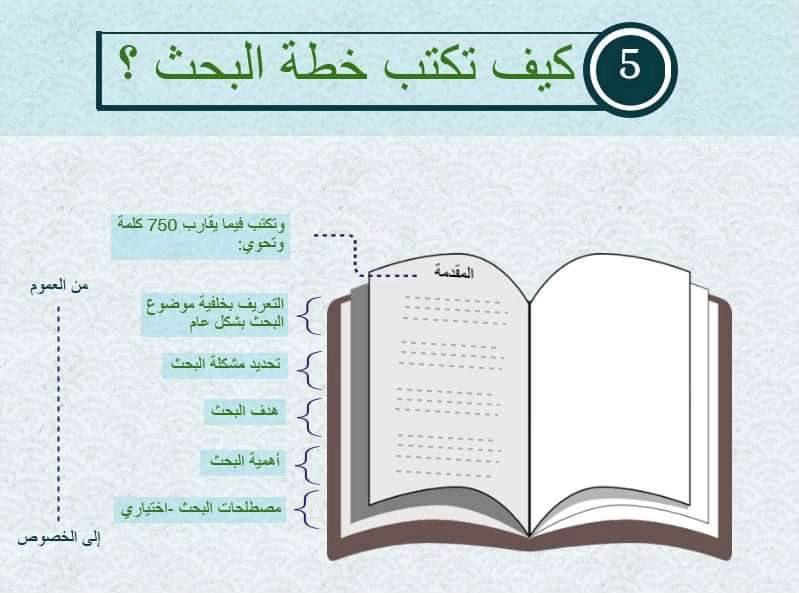 5
كيف تكتب خطة البحث ؟
وتكتب فيما يقارب 750 كلمة
وتحوي:
المقدمة
من العموم
التعريف بخلفية موضوع
البحث بشكل عام
تحديد مشكلة البحث
هدف البحث
أهمية البحث
مصطلحات البحث -اختياري
إلى الخصوص